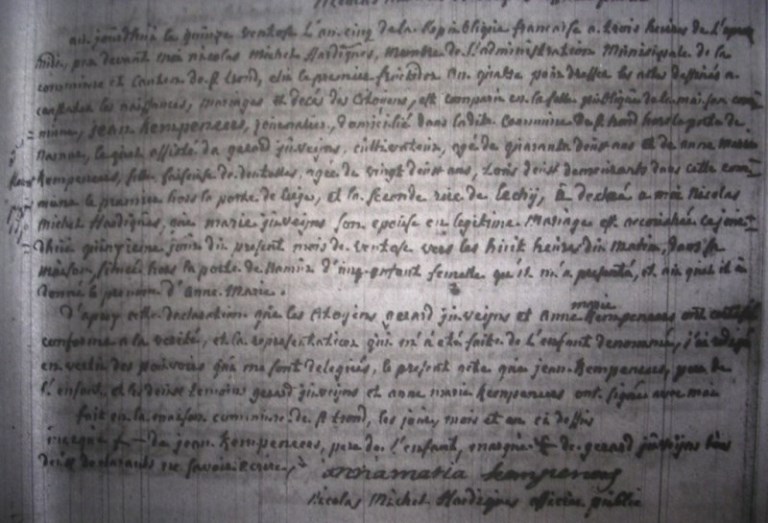 aujourdhui le quinze ventose l'an cinq de la Republique francaise a trois heures de l'apres
midi, par devant moi nicolas Michel Hardignes, membre de l'administration Municipale de la
commune et canton de St trond, elu le premier fructidor an quatre pour dresser les actes destinés a
constater les naissances, mariages et decés des Citoyens, est comparu en la salle publique de la maison com=
mune, jean Kempeneers, journalier, domicilié dans ladite Commune de St trond hors la porte de
Namur, lequel assisté de gerard juveyns, cultivateur, agé de quarante deux ans et de anne marie
Kempeneers, fille faiseuse de dentelles, agée de vingt deux ans, tous deux demeurants dans cette com=
mune le premier hors la porte de Liege, et la seconde rue de , a declaré a moi Nicolas
Michel Hardignes, que marie juveyns son epouse en legitime Mariage est accouchée cejour=
dhui quinzieme jour du present mois de ventose vers les huit heures du Matin, dans sa
maison située hors la porte de Namur d'une enfant femelle qu'il m'a presenté, et auquel il a
donné le prenom d'Anne Marie.
d'apres cette declaration que les Citoyens gerard juveyns et Anne marie Kempeneers ont certifié
conforme a la verité, et la representation qui m'a été faite de l'enfant denommé, j'ai redigé
en vertu des pouvoirs qui me sont delegués, le present acte que jean Kempeneers, pere de
l'enfant, et les deux temoins gerard juveyns et anne marie Kempeneers ont signé avec moi
fait en la maison commune de St trond, les jour, mois et an ci dessus
marque + de jean Kempeneers, pere de l'enfant, marque + de gerard juveyns
deux declarants ne savoir ecrire,
anna maria kempeneers
Nicolas Michel Hardignes officier public